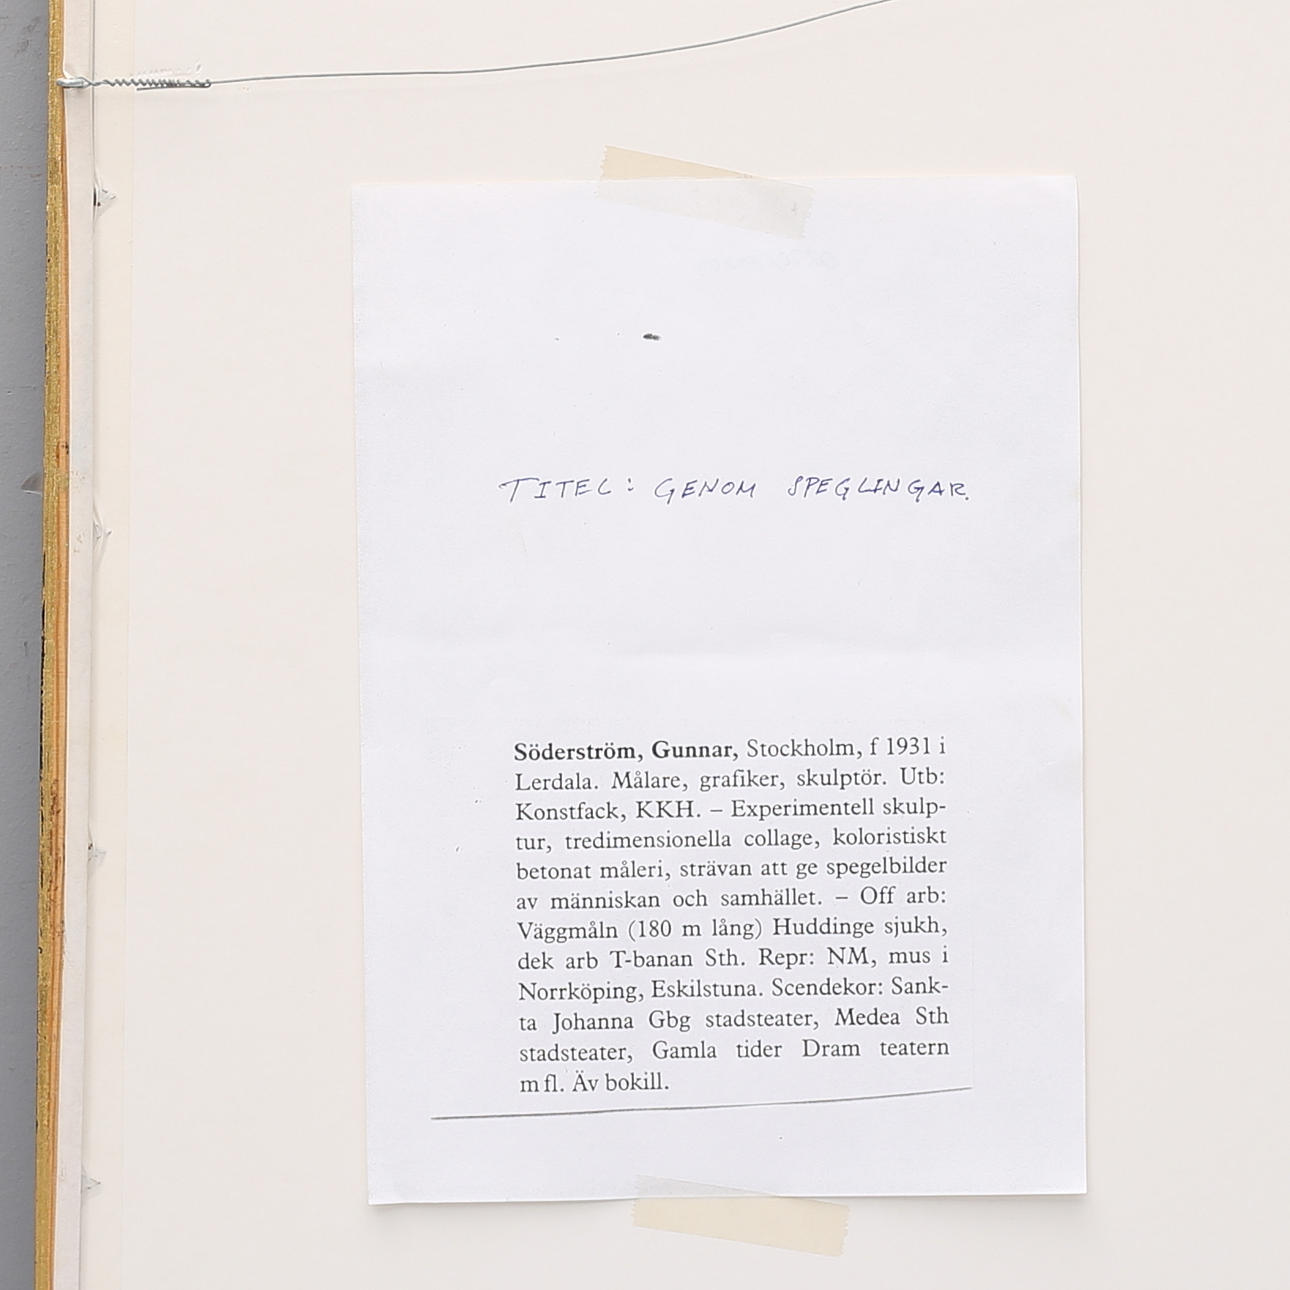 TITEL: GENOM SPEGLINGAR.
Söderström, Gunnar, Stockholm, f 1931 i
Lerdala. Målare, grafiker, skulptör. Utb:
Konstfack, KKH. – Experimentell skulp-
tur, tredimensionella collage, koloristiskt
betonat måleri, strävan att ge spegelbilder
av människan och samhället. – Off arb:
Väggmåln (180 m lång) Huddinge sjukh,
dek arb T-banan Sth. Repr: NM, mus i
Norrköping, Eskilstuna. Scendekor: Sank-
ta Johanna Gbg stadsteater, Medea Sth
stadsteater, Gamla tider Dram teatern
m fl. Äv bokill.